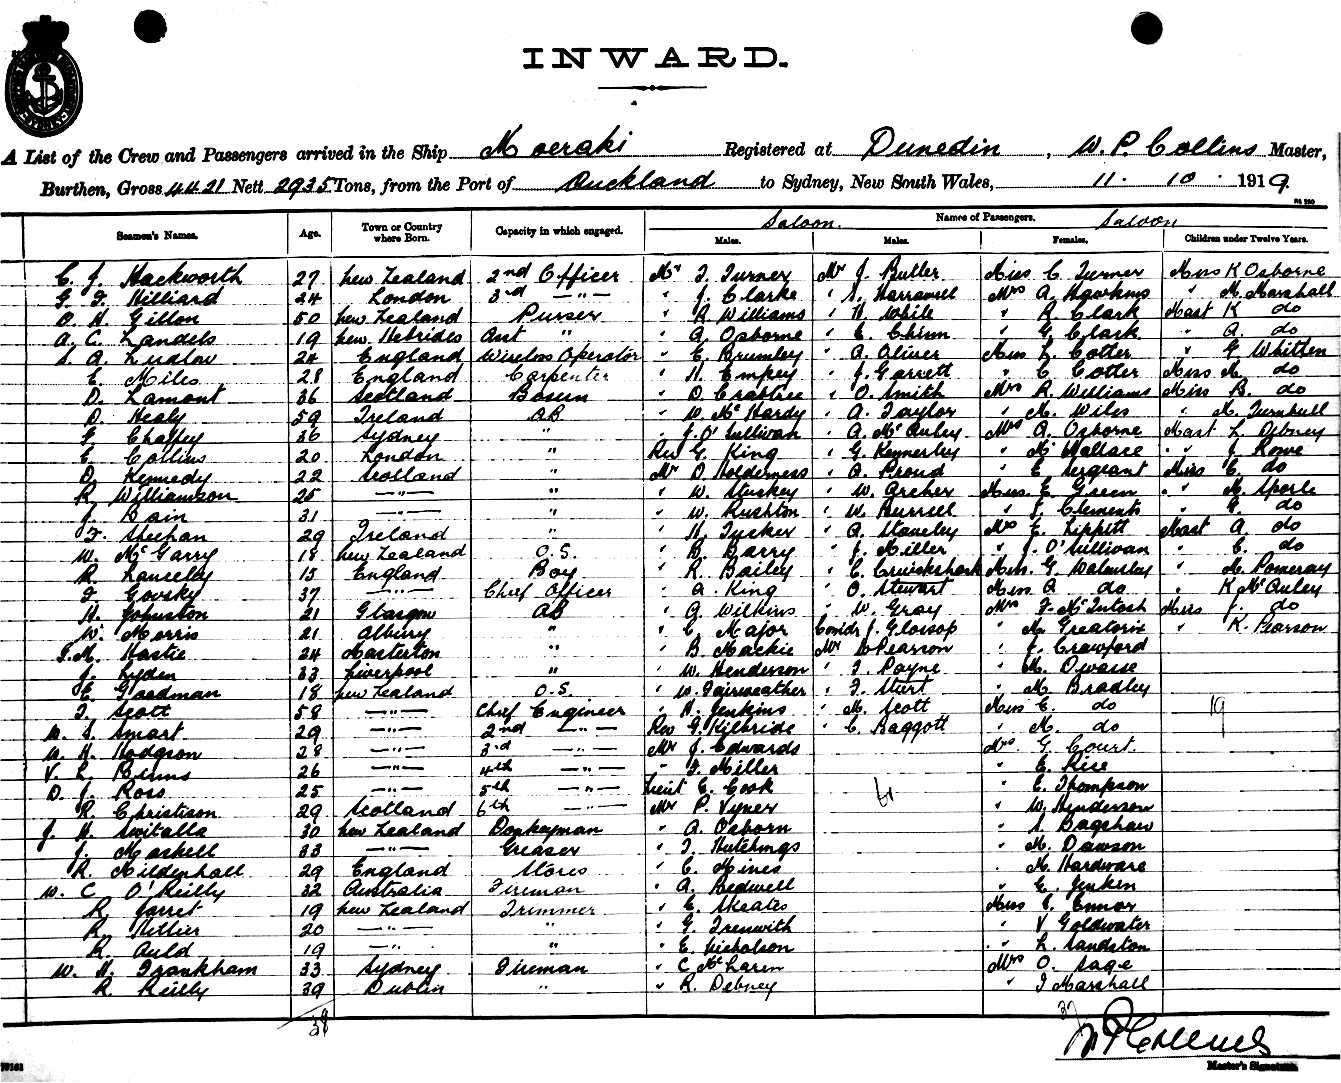 INWARD.
A List of the Crew and Passengers arrived in the Ship Moeraki Registered at Dunedin, W. P. Collins Master,
Burthen, Gross 4421 Nett 2935 Tons, from the Port of Auckland to Sydney, New South Wales, 11. 10. 1919.
Saloon. Names of Passengers. Saloon
Seamen's Names. Age. Town or Country where Born. Capacity in which engaged. Males. Males. Females. Children under Twelve Years.
C. J. Hackworth 27 New Zealand 2nd Officer Mr F. Turner Mr J. Butler Miss C. Turner Miss K Osborne
G F Hilliard 24 London 3rd —"— " J. Clarke " S. Harrawell Mrs A Hawkins " M. Marshall
O H Gillon 50 New Zealand Purser " R Williams " H. While " R Clark Mast K do
A. C. Landels 19 New Hebrides Asst " " A Osborne " E. Chinn " G Clark " A. do
S. A. Ludlow 24 England Wireless Operator " E. Brumley " A. Oliver Miss L. Cotter " G Whitten
E. Miles 28 England Carpenter " H. Empey " J. Garrett " C Cotter Miss M. do
D. Lamont 36 Scotland Bosun " D. Crabtree " O. Smith Mrs R. Williams Miss B. do
D. Healy 59 Ireland AB " W. McHardy " A. Taylor " M. Wiles " M. Turnbull
F Chaffey 36 Sydney " " J. O'Sullivan " A. McAuley Mrs A. Osborne Mast L. Debney
E Collins 20 London " Rev G. King " G. Kennerley " M Wallace " J. Rowe
D. Kennedy 22 Scotland " Mr D. Holderness " A. Proud " E Sergeant Miss C. do
R Williamson 25 —"— " " W. Stuckey " W. Archer Miss. E. Green " M. Sporle
J. Bain 31 —"— " " W. Rushton " W. Burrell " J. Clements " G. do
F. Sheehan 29 Ireland " " H. Tucker " A. Staveley Mrs E. Lippitt Mast A. do
W. McGarry 18 New Zealand O.S. " B. Barry " J. Miller " J. O'Sullivan " C. do
R. Lanceley 15 England Boy " R. Bailey " C. Cruickshank Miss. G Walmsley " M. Pomeray
F Govsky 37 —"— Chief Officer " A. King " O. Stewart Miss A do " K McAuley
H. Johnston 21 Glasgow AB " G. Wilkins " W. Gray Mrs F. McIntosh Miss J. do
W. Morris 21 Albury " " C. Major Comdr J. Glossop " M Greatorix " K. Pearson
F. M. Hastie 24 Masterton " " B. Mackie Mr W Pearson " J. Crawford
J. Lyden 33 Liverpool " " W. Henderson " F. Payne " M. Owasse
E Goodman 18 New Zealand O.S. " W. Fairweather " F. Sturt " M. Bradley
F. Scott 58 —"— Chief Engineer " H. Jenkins " M. Scott Miss E. do 19
W. S. Smart. 29 —"— 2nd —"— Rev G. Kilbride " C. Baggott " M. do
W. H. Hodgson 28 —"— 3rd —"— Mr J. Edwards Mrs G. Court.
V. L. Binns 26 —"— 4th —"— " F. Miller " E. Rise
D. J. Ross 25 —"— 5th —"— Lieut C. Cook " E. Thompson
R. Christison 29 Scotland 6th —"— Mr P. Vyner " W. Henderson
J. H. Switalla 30 New Zealand Donkeyman " A. Osborn " S. Bagshaw
J. Maskell 33 —"— Greaser " F. Hutchings " M. Dawson
R. Mildenhall 29 England Stores " C. Hines " M. Hardware
W. C. O'Reilly 32 Australia Fireman " A. Bedwell " G. Jenken
R. Jarret 19 New Zealand Trimmer " C. Skeates Miss C. Ennor
R. Hillier 20 —"— " " G. Trenwith " V Goldwater
R Auld 19 —"— " " E. Nicholson " L. Sandston
W. H. Frankham 33 Sydney Fireman " C McLaren Mrs O. Sage
R. Reilly 39 Dublin " " R. Debney " J Marshall
38 37
W P Collins
Master's Signature.